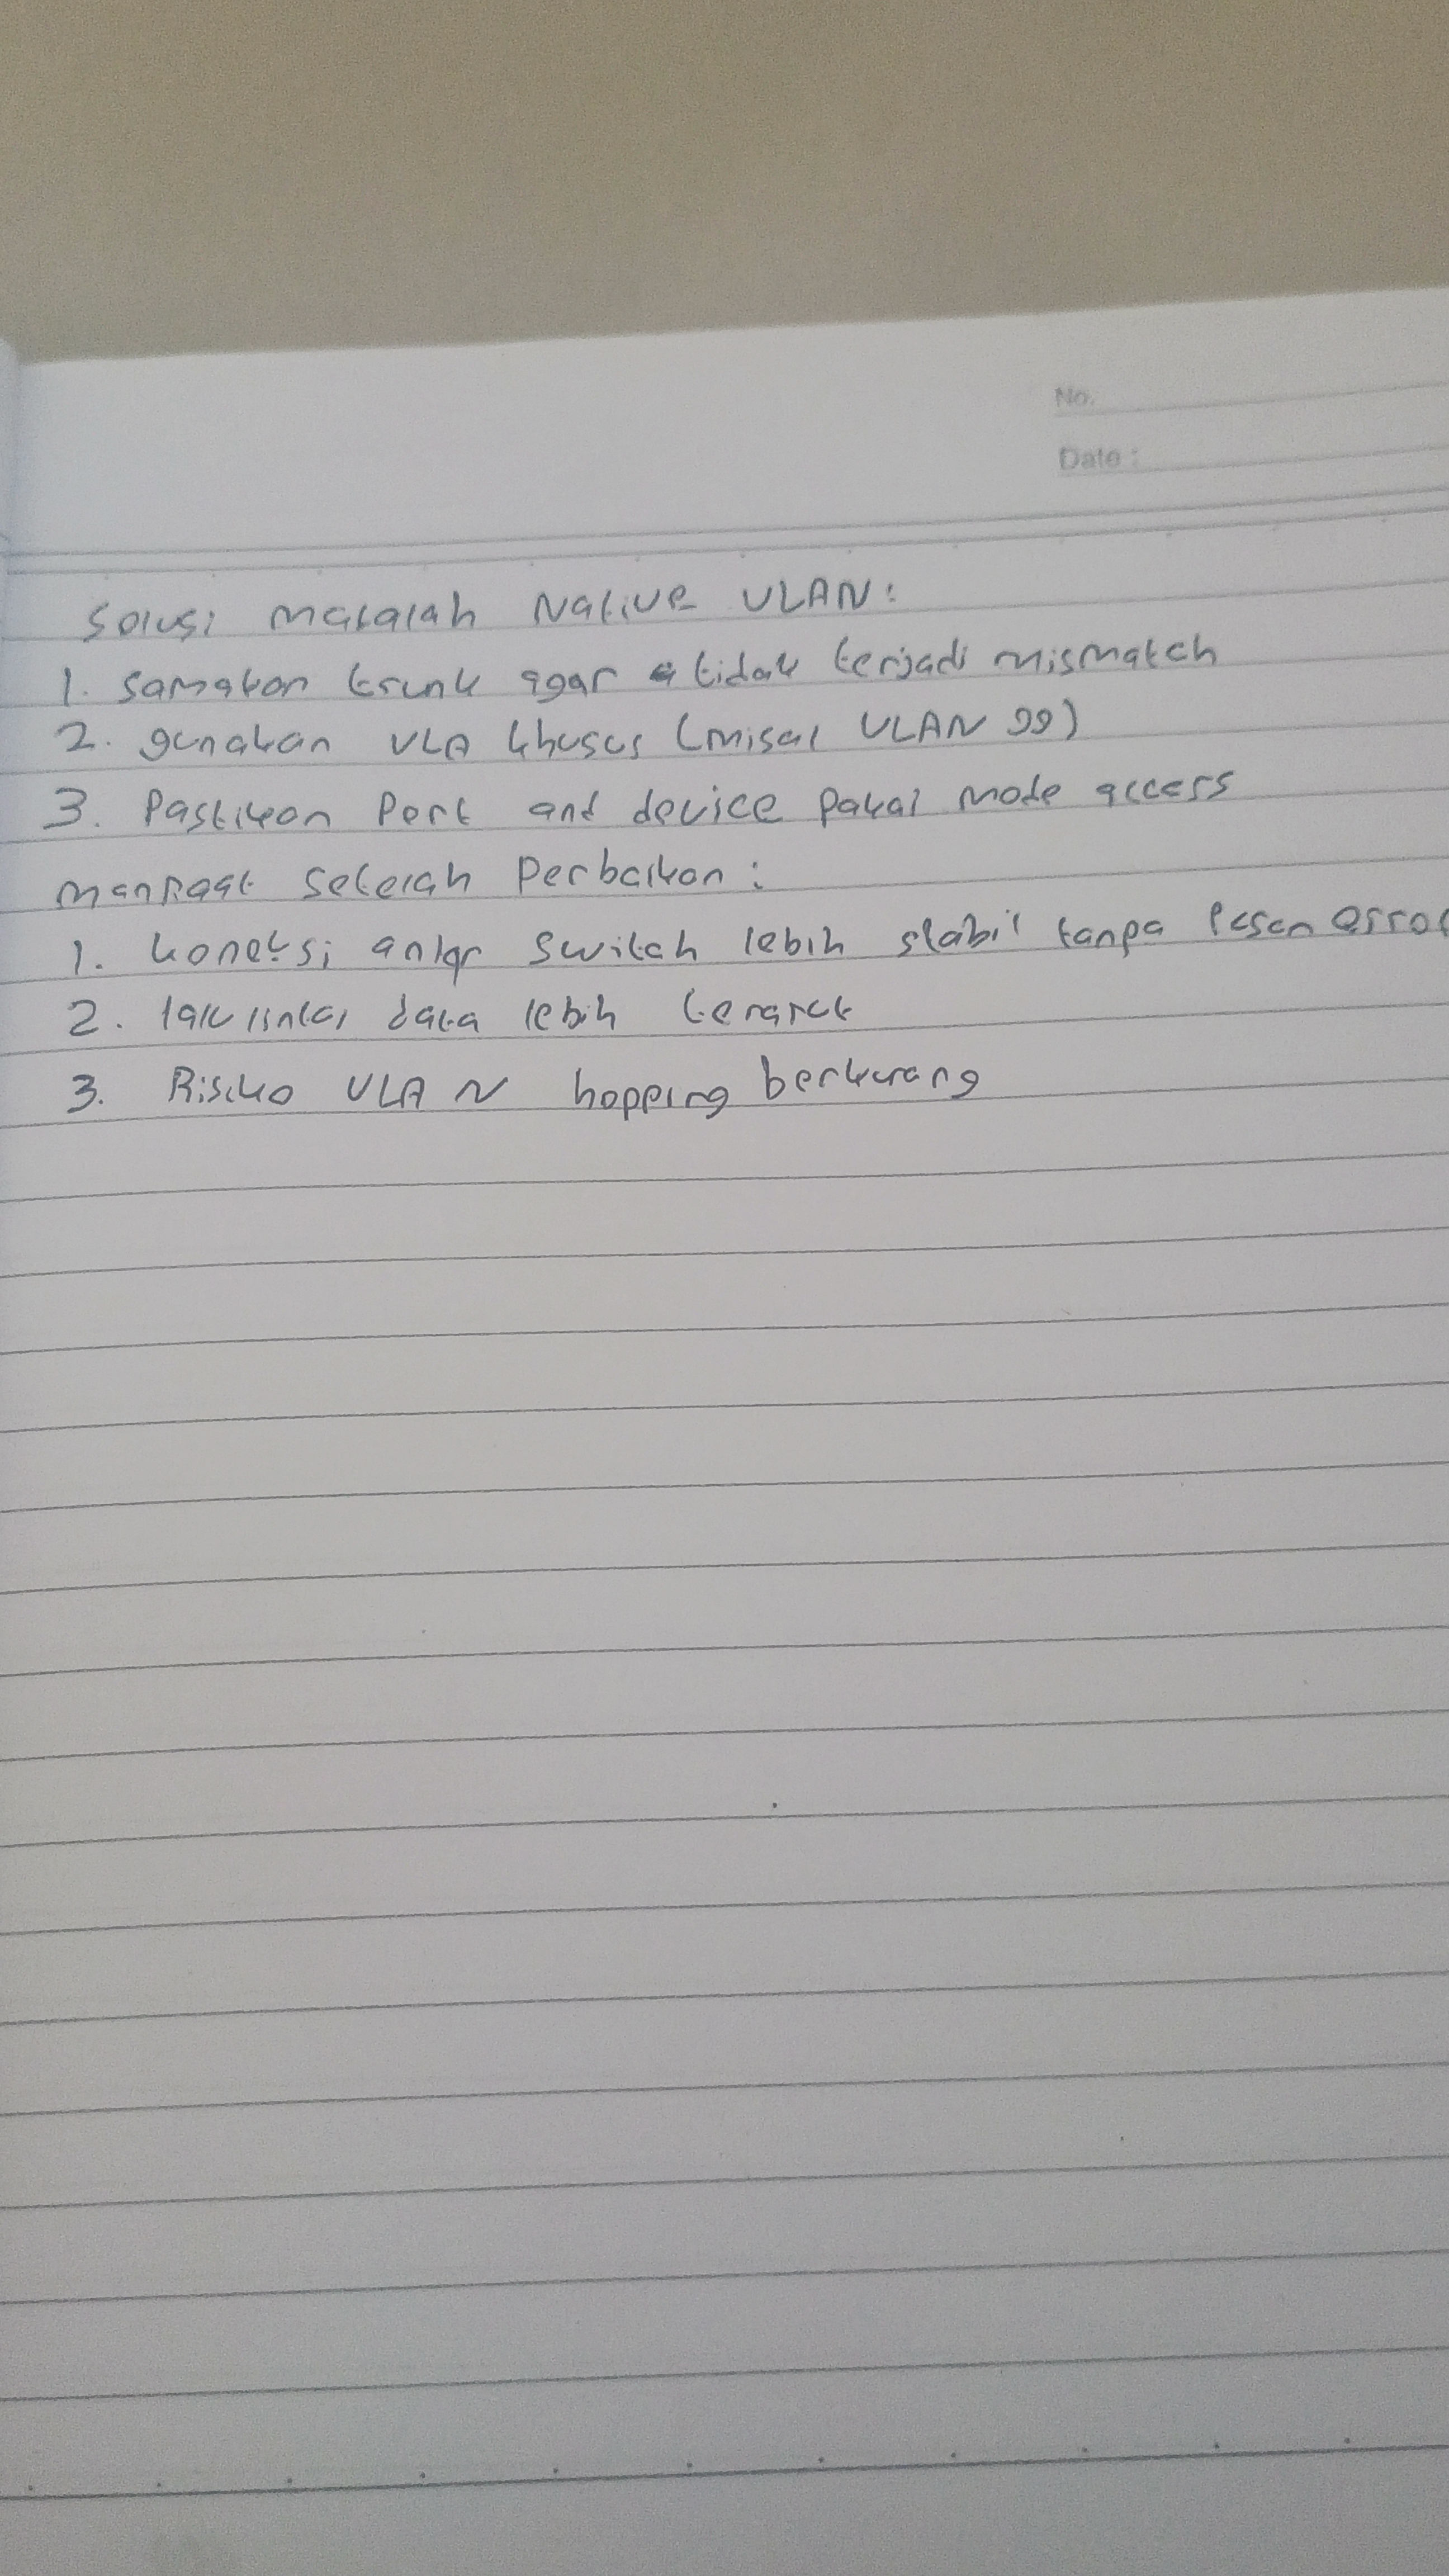 No.
Date :
Solusi masalah Native VLAN:
1. samakan trunk agar tidak terjadi mismatch
2. gunakan VLA khusus (misal VLAN 99)
3. Pastikan Port and device pakai mode access
manfaat setelah Perbaikan :
1. koneksi antar switch lebih stabil tanpa pesan error
2. lalu lintas data lebih teratur
3. Risiko VLAN hopping berkurang